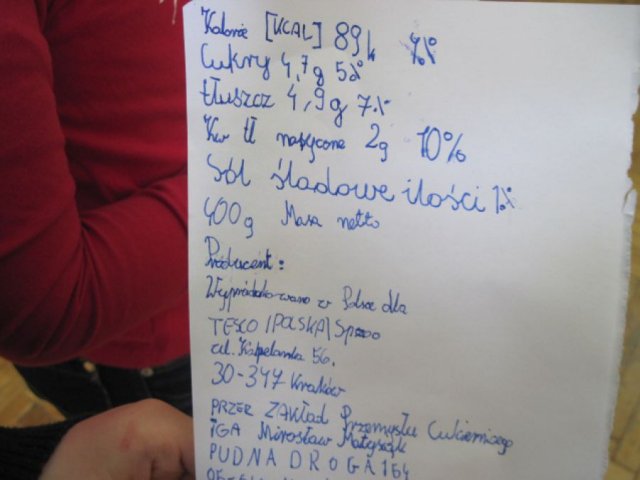 Kalorie [KCAL] 89k 4%
Cukry 4,7g 5%
tłuszcz 4,9g 7%
Kw tł nasycone 2g 10%
Sól śladowe ilości 1%
400g Masa netto
Producent:
Wyprodukowano w Polsce dla
TESCO (POLSKA) Sp. zoo
ul. Kapelanka 56,
30-347 Kraków
PRZEZ ZAKŁAD Przemysłu Cukierniczego
IGA Mirosław Matyszak
PUDNA DROGA 164